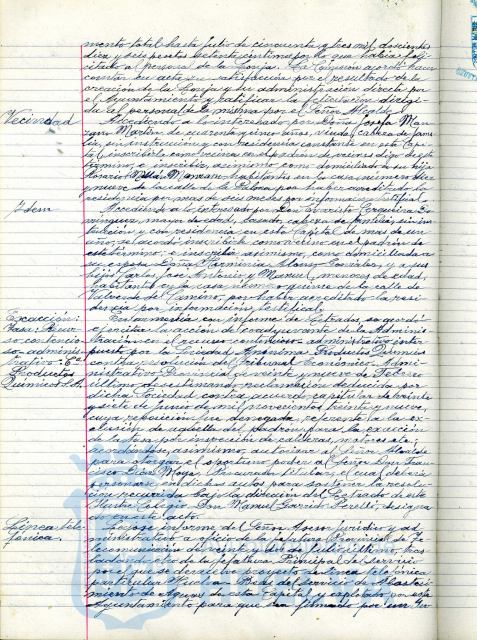 mento total hasta julio de cincuenta y tres mil doscientas
diez y seis pesetas setenta céntimos por lo que había feli-
citado al personal de la Lonja. La Comisión acordó hacer
constar en acta su satisfacción por el resultado de la
creación de la Lonja y su administración directa por
el Ayuntamiento y ratificar la felicitación dirigi-
da al personal de la misma por el Señor Alcalde.
Vecindad
Accediendo a lo interesado por Doña Josefa Man-
zano Martín, de cuarenta y cinco años, viuda, cabeza de fami-
lia, sin instrucción y con residencia constante en esta Capi-
tal, inscribirla como vecina en el padrón de vecinos de este
término, e inscribir, asimismo, como domiciliado a su hijo
Manzano, habitantes en la casa número diez
y nueve de la calle de la Palma por haber acreditado la
residencia por mas de seis meses por información testifical.
Idem
Accediendo a lo interesado por Don Evaristo Cerqueira Do-
minguez, mayor de edad, casado, cabeza de familia, sin ins-
trucción y con residencia en esta Capital de mas de un
año, se acordó inscribirle como vecino en el padrón de
este término; e inscribir, asimismo, como domiciliada a
su esposa Doña Herminia Alonso González, y a sus
hijos Carlos, José Antonio y Manuel, menores de edad,
habitantes en la casa número quince de la calle de
Valverde del Camino, por haber acreditado la resi-
dencia por información testifical.
Exacción:
Tasa: Recur-
so contencio-
so-adminis-
trativo - Cª
Productos
Químicos S.A.
En armonía con informe de Letrados, se acordó
ejercitar la acción de coadyuvante de la Adminis-
tración en el recurso contencioso-administrativo inter-
puesto por la Sociedad Anónima Productos Químicos
contra resolución del Tribunal Económico-Admi-
nistrativo Provincial de veinte y nueve de Febrero
último desestimando reclamación deducida por
dicha Sociedad contra acuerdo capitular de veinte
y siete de junio de mil novecientos treinta y nueve,
cuya reposición fue denegada, referente a la ex-
clusión de aquella del padrón para la exacción
de la tasa por inspección de calderas, motores etc;
acordándose, asimismo, autorizar al Señor Alcalde
para otorgar el oportuno poder a Señor Don Fran-
cisco Díaz Moya, Procurador titular, el cual deberá
personarse en dichos autos para sostener la resolu-
ción recurrida bajo la dirección del Letrado de este
Ilustre Colegio Don Manuel Garrido Perelló, designa-
do en este acto.
Línea tele-
fónica.
Leyose informe del Señor Asesor jurídico y ad-
ministrativo a oficio de la Jefatura Provincial de Te-
lecomunicación de veinte y dos de Julio último, tras-
ladando otro de la Jefatura Principal del servicio
por el que se devuelve concierto de línea telefónica
particular Huelva - Beas del servicio de Abasteci-
miento de Aguas de esta Capital y explotado por este
Ayuntamiento para que sea firmado por un Ins-